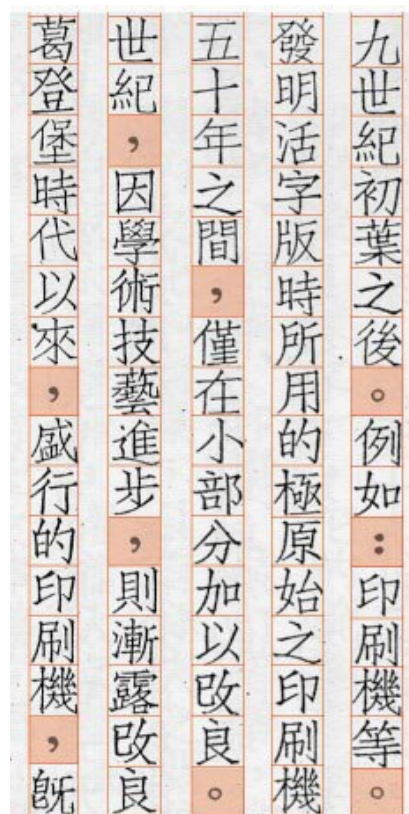 九世紀初葉之後。例如：印刷機等。
發明活字版時所用的極原始之印刷機
五十年之間，僅在小部分加以改良。
世紀，因學術技藝進步，則漸露改良
葛登堡時代以來，盛行的印刷機，既